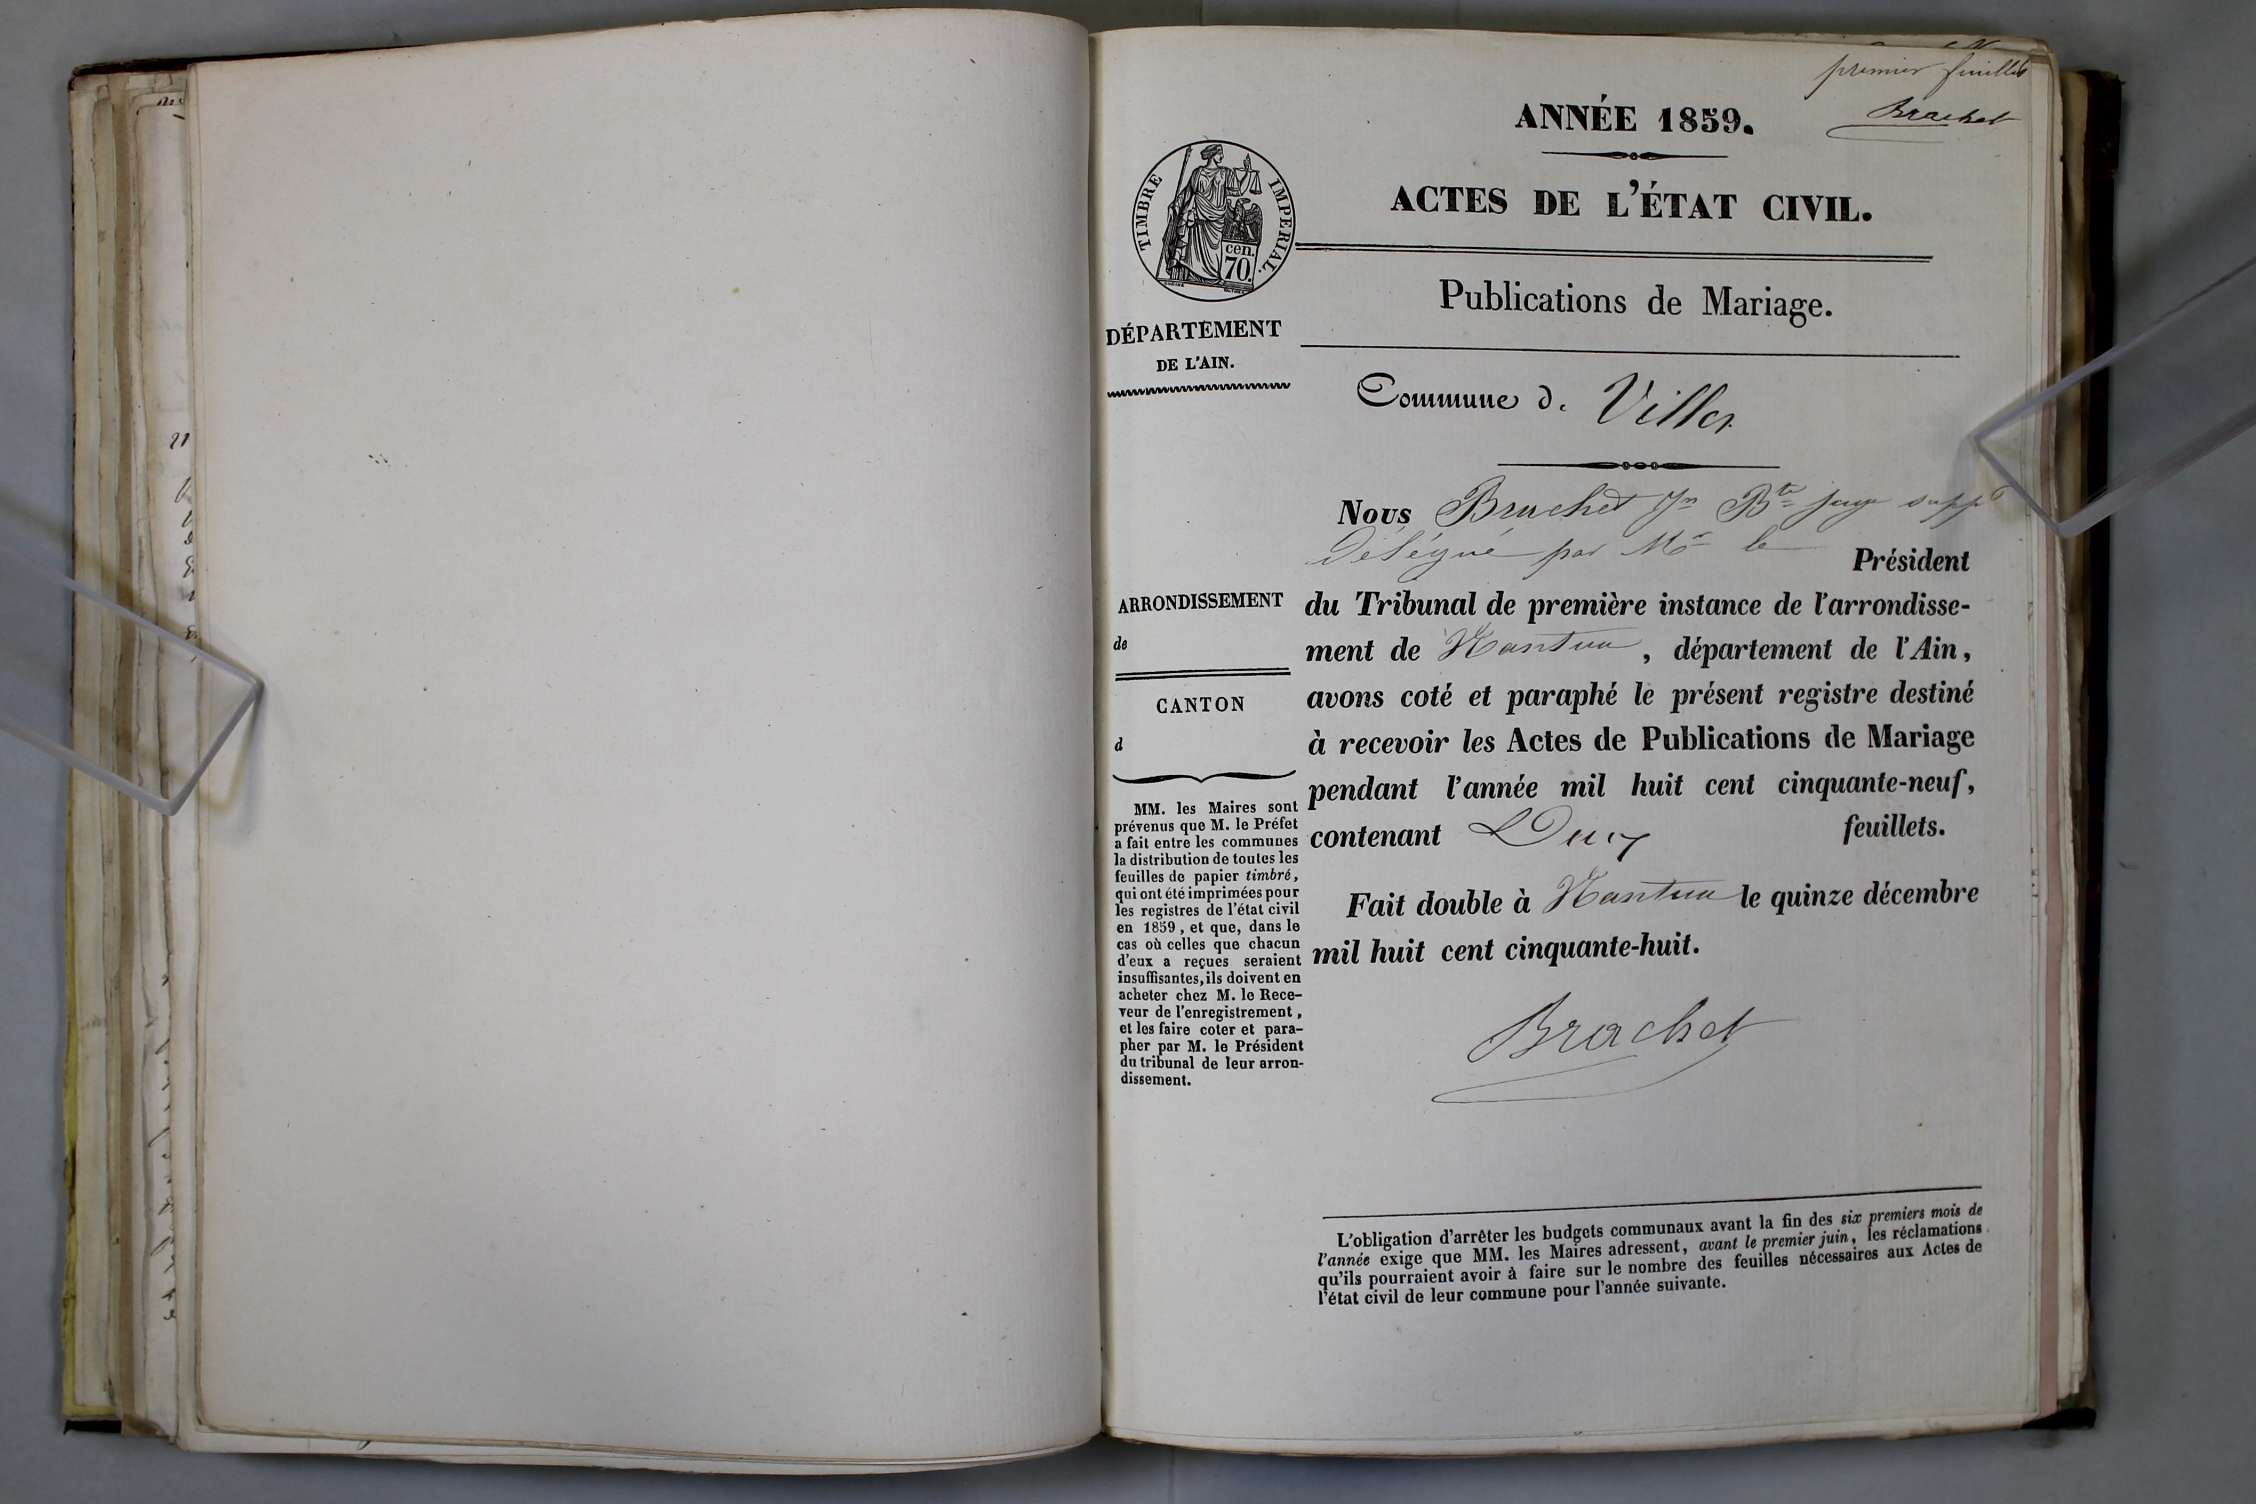 premier feuillet
Brachet
ANNÉE 1859.
ACTES DE L'ÉTAT CIVIL.
TIMBRE IMPERIAL.
cen.
70.
Publications de Mariage.
DÉPARTEMENT
DE L'AIN.
Commune de Villes
Nous Brachet Jn Bte juge supp
Délégué par Mr le Président
du Tribunal de première instance de l'arrondisse-
ment de Nantua, département de l'Ain,
avons coté et paraphé le présent registre destiné
à recevoir les Actes de Publications de Mariage
pendant l'année mil huit cent cinquante-neuf,
contenant Deux feuillets.
Fait double à Nantua le quinze décembre
mil huit cent cinquante-huit.
Brachet
ARRONDISSEMENT
de
CANTON
d
MM. les Maires sont
prévenus que M. le Préfet
a fait entre les communes
la distribution de toutes les
feuilles de papier timbré,
qui ont été imprimées pour
les registres de l'état civil
en 1859, et que, dans le
cas où celles que chacun
d'eux a reçues seraient
insuffisantes, ils doivent en
acheter chez M. le Rece-
veur de l'enregistrement,
et les faire coter et para-
pher par M. le Président
du tribunal de leur arron-
dissement.
L'obligation d'arrêter les budgets communaux avant la fin des six premiers mois de
l'année exige que MM. les Maires adressent, avant le premier juin, les réclamations
qu'ils pourraient avoir à faire sur le nombre des feuilles nécessaires aux Actes de
l'état civil de leur commune pour l'année suivante.